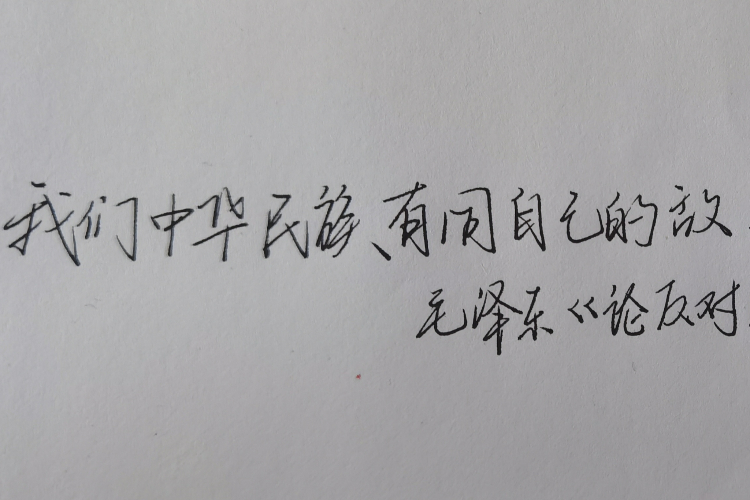 我们中华民族、有同自己的敌
毛泽东《论反对